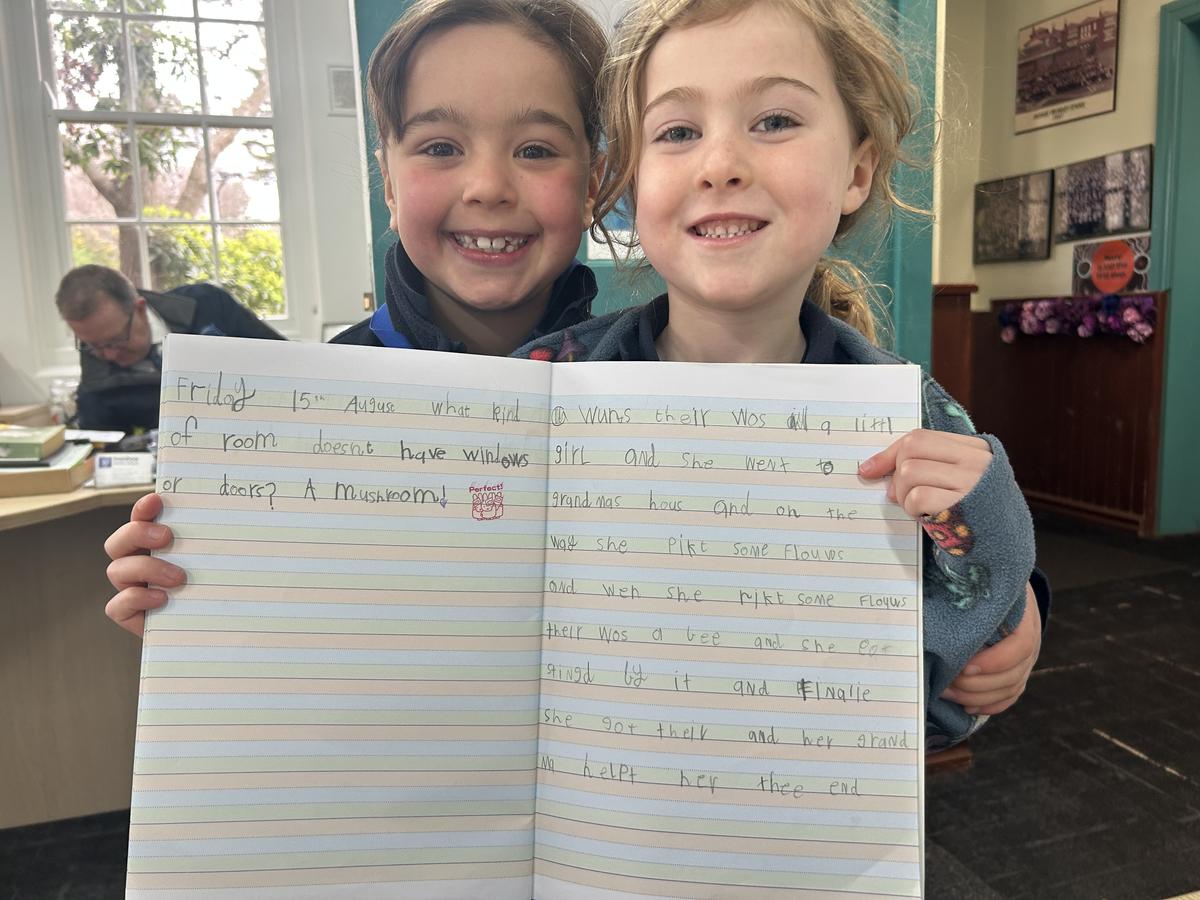 Friday 15th August what kind
of room doesnt have windows
or doors? A mushroom!
Perfect!
wuns their wos a littl
girl and she went to
grandmas hous and on the
way she pikt some flouws
and wen she pikt some flouws
their wos a bee and she got
stingd by it and finalie
she got their and her grand
ma helpt her thee end